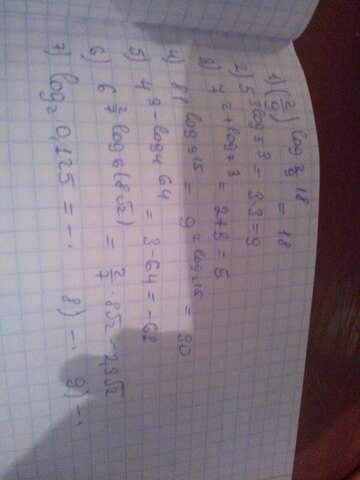 1) (2/9) log 2/9 18 = 18
2) 5 3log5 3 = 3·3=9
3) 7 2+log7 3 = 2+3=5
4) 81 log9 15 = 9 2log9 15 = 30
5) 4 3-log4 64 = 3-64=-61
6) 6 2/7 log6(8√2) = 2/7 · 8√2 - 2,3√2
7) log2 0,125 = -·· 8) -·· 9) -··